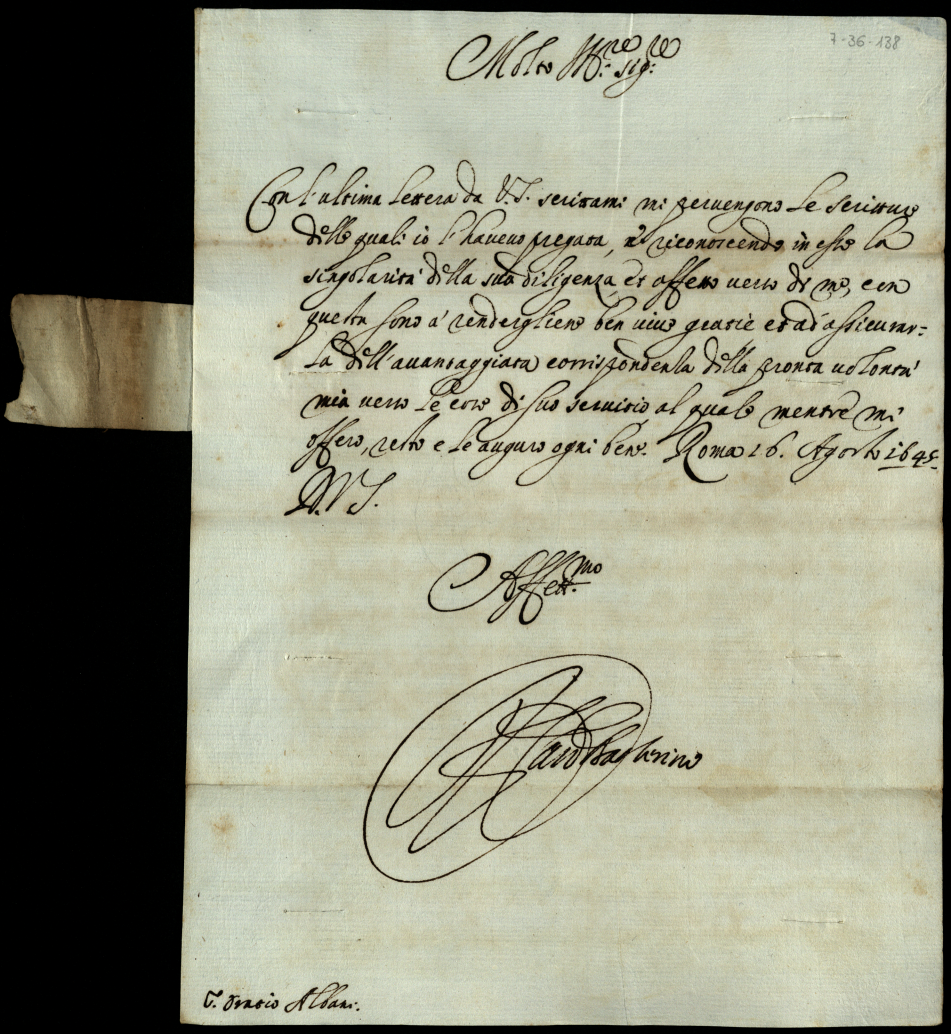 7-36-138
Molto Ill.re sig.re
Con l'ultima lettera da V.S. scrittami mi pervengono le scritture
delle quali io l'havevo pregata, e riconoscendo in esse la
singolarità della sua diligenza, et affetto verso di me, con
questa sono à renderglien ben vive gratie et ad assicurar-
la dell'avantaggiata corrispondenza della pronta volontà
mia verso le cose di suo servitio, al quale mentre mi
offero, resto e le auguro ogni bene. Roma 16. Agosto 1645.
D.V.S.
Aff.ett.mo
S. Oratio Albani.